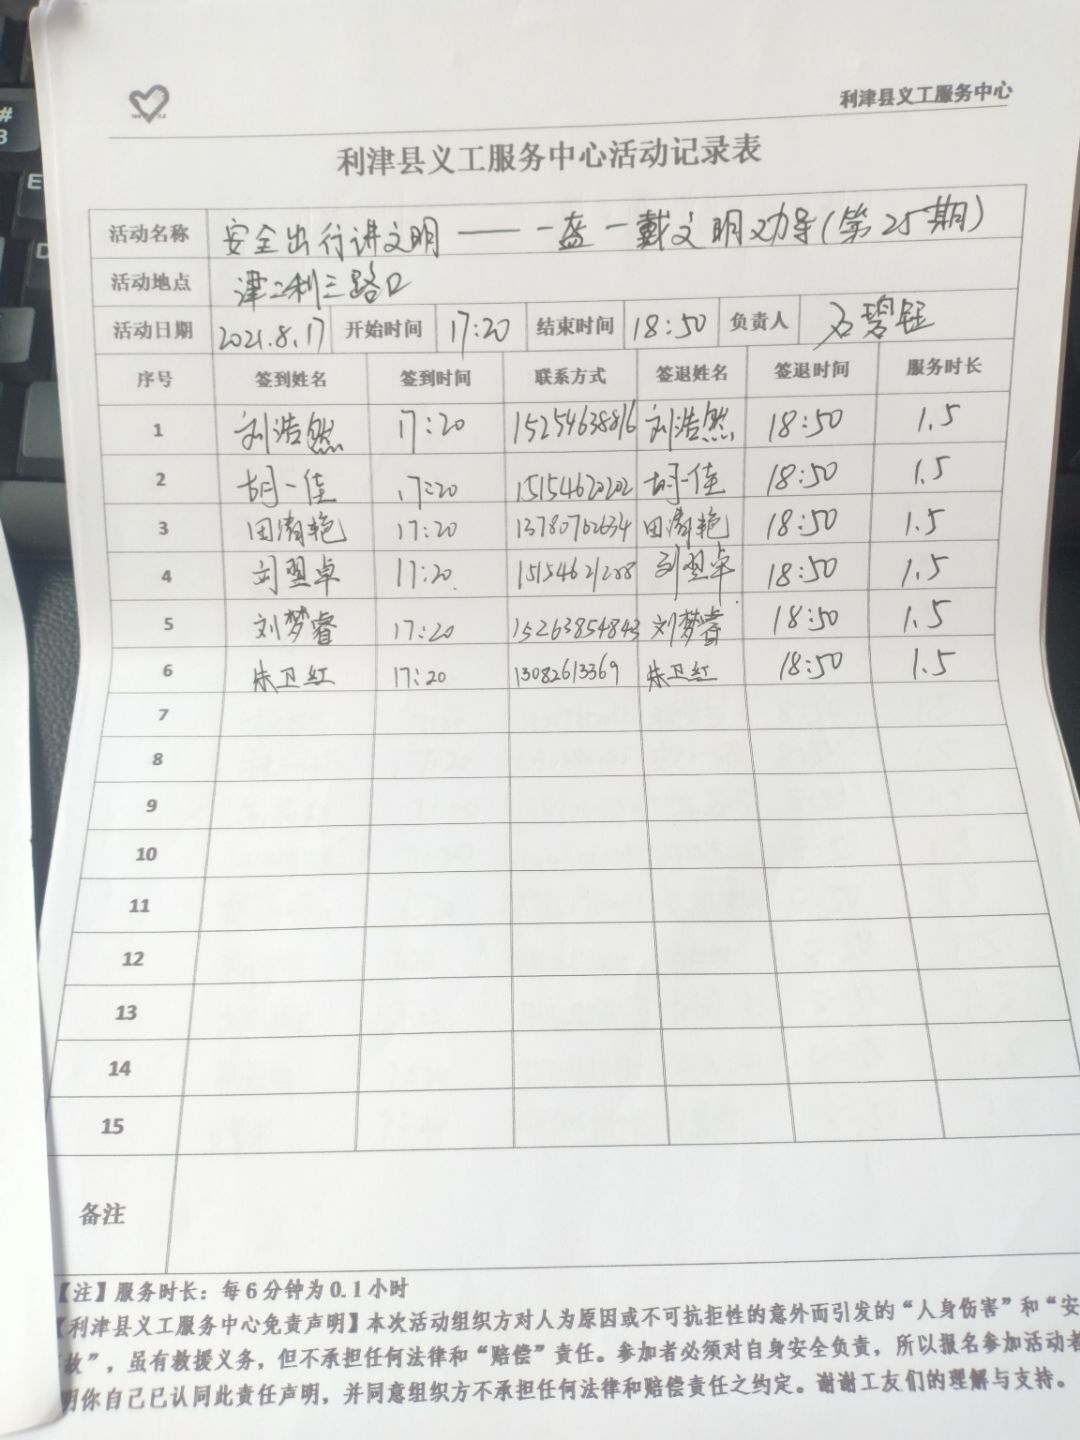 利津县义工服务中心
利津县义工服务中心活动记录表
活动名称 安全出行讲文明——一盔一戴文明劝导(第25期)
活动地点 津二利三路口
活动日期 2021.8.17 开始时间 17:20 结束时间 18:50 负责人 石碧钰
序号 签到姓名 签到时间 联系方式 签退姓名 签退时间 服务时长
1 刘浩然 17:20 15254638816 刘浩然 18:50 1.5
2 胡一佳 17:20 15154620202 胡一佳 18:50 1.5
3 田 艳 17:20 13780762634 田 艳 18:50 1.5
4 刘曌卓 17:20 15154621288 刘曌卓 18:50 1.5
5 刘梦睿 17:20 15263854843 刘梦睿 18:50 1.5
6 朱卫红 17:20 13082613369 朱卫红 18:50 1.5
7
8
9
10
11
12
13
14
15
备注
【注】服务时长：每6分钟为0.1小时
【利津县义工服务中心免责声明】本次活动组织方对人为原因或不可抗拒性的意外而引发的“人身伤害”和“安
故”，虽有救援义务，但不承担任何法律和“赔偿”责任。参加者必须对自身安全负责，所以报名参加活动者
明你自己已认同此责任声明，并同意组织方不承担任何法律和赔偿责任之约定。谢谢工友们的理解与支持。
#
3
E
D